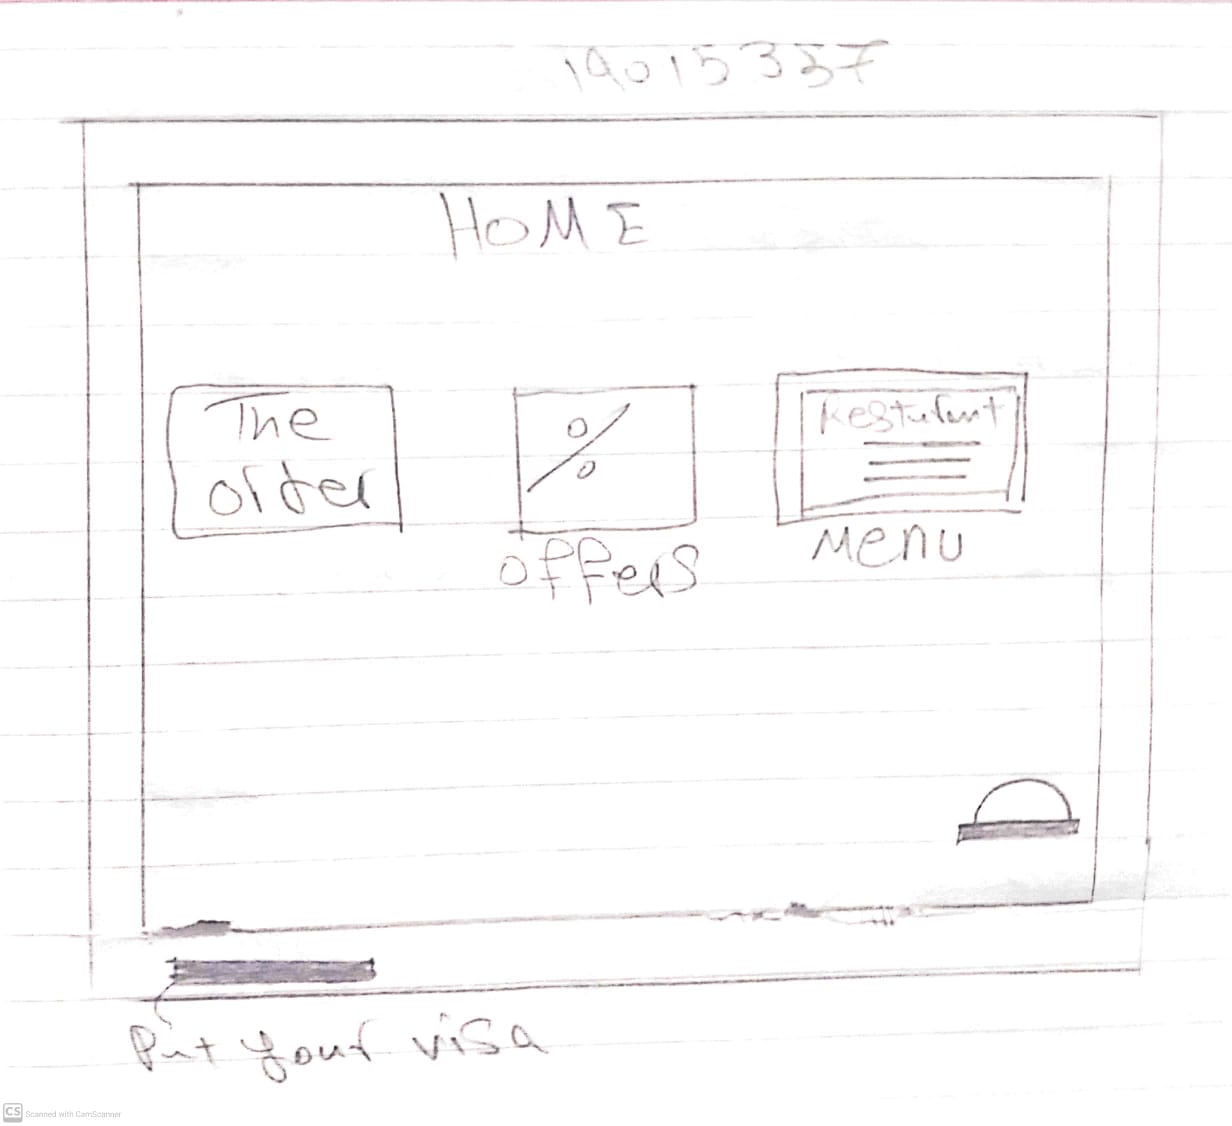 19015337
HOME
The
order
%
offers
Resturant
Menu
Put your visa
CS Scanned with CamScanner